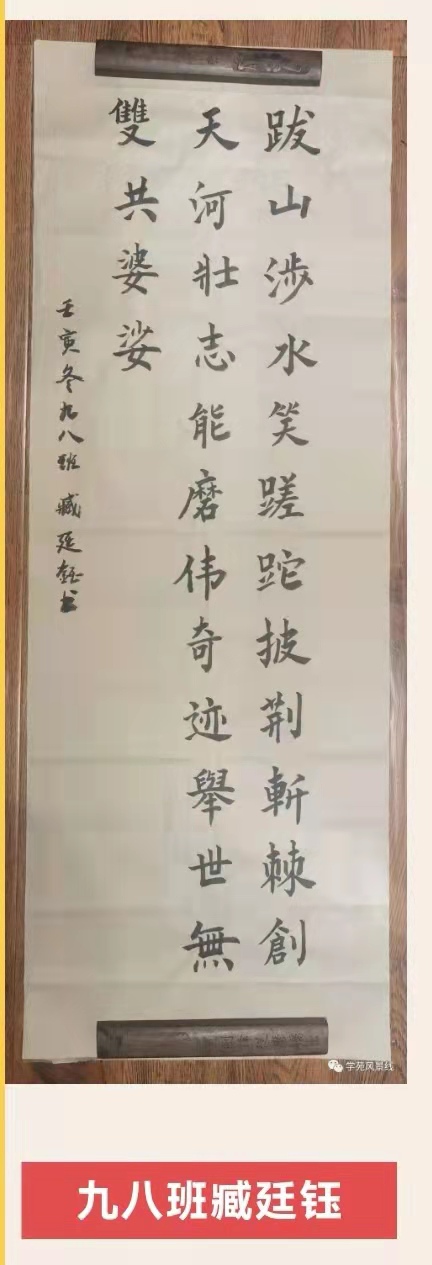 跋山涉水笑蹉跎披荆斬棘創
天河壯志能磨伟奇迹舉世無
雙共婆娑
壬寅冬九八班臧廷鈺书
学苑风景线
九八班臧廷钰